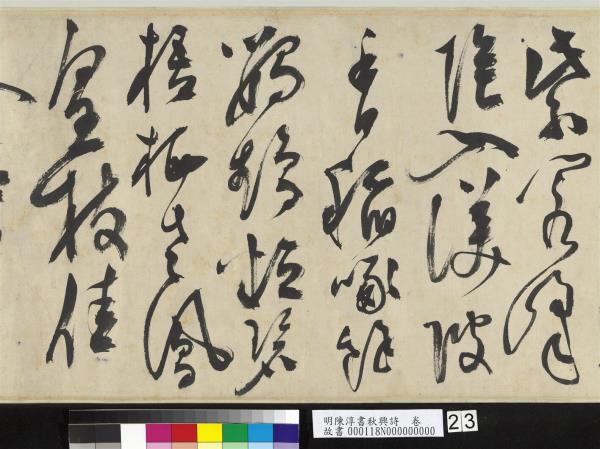 紫閣峰
陰入渼陂
香稻啄餘
鸚鵡粒碧
梧棲老鳳
皇枝佳
人
明陳淳書秋興詩　卷
故書 000118N000000000
23